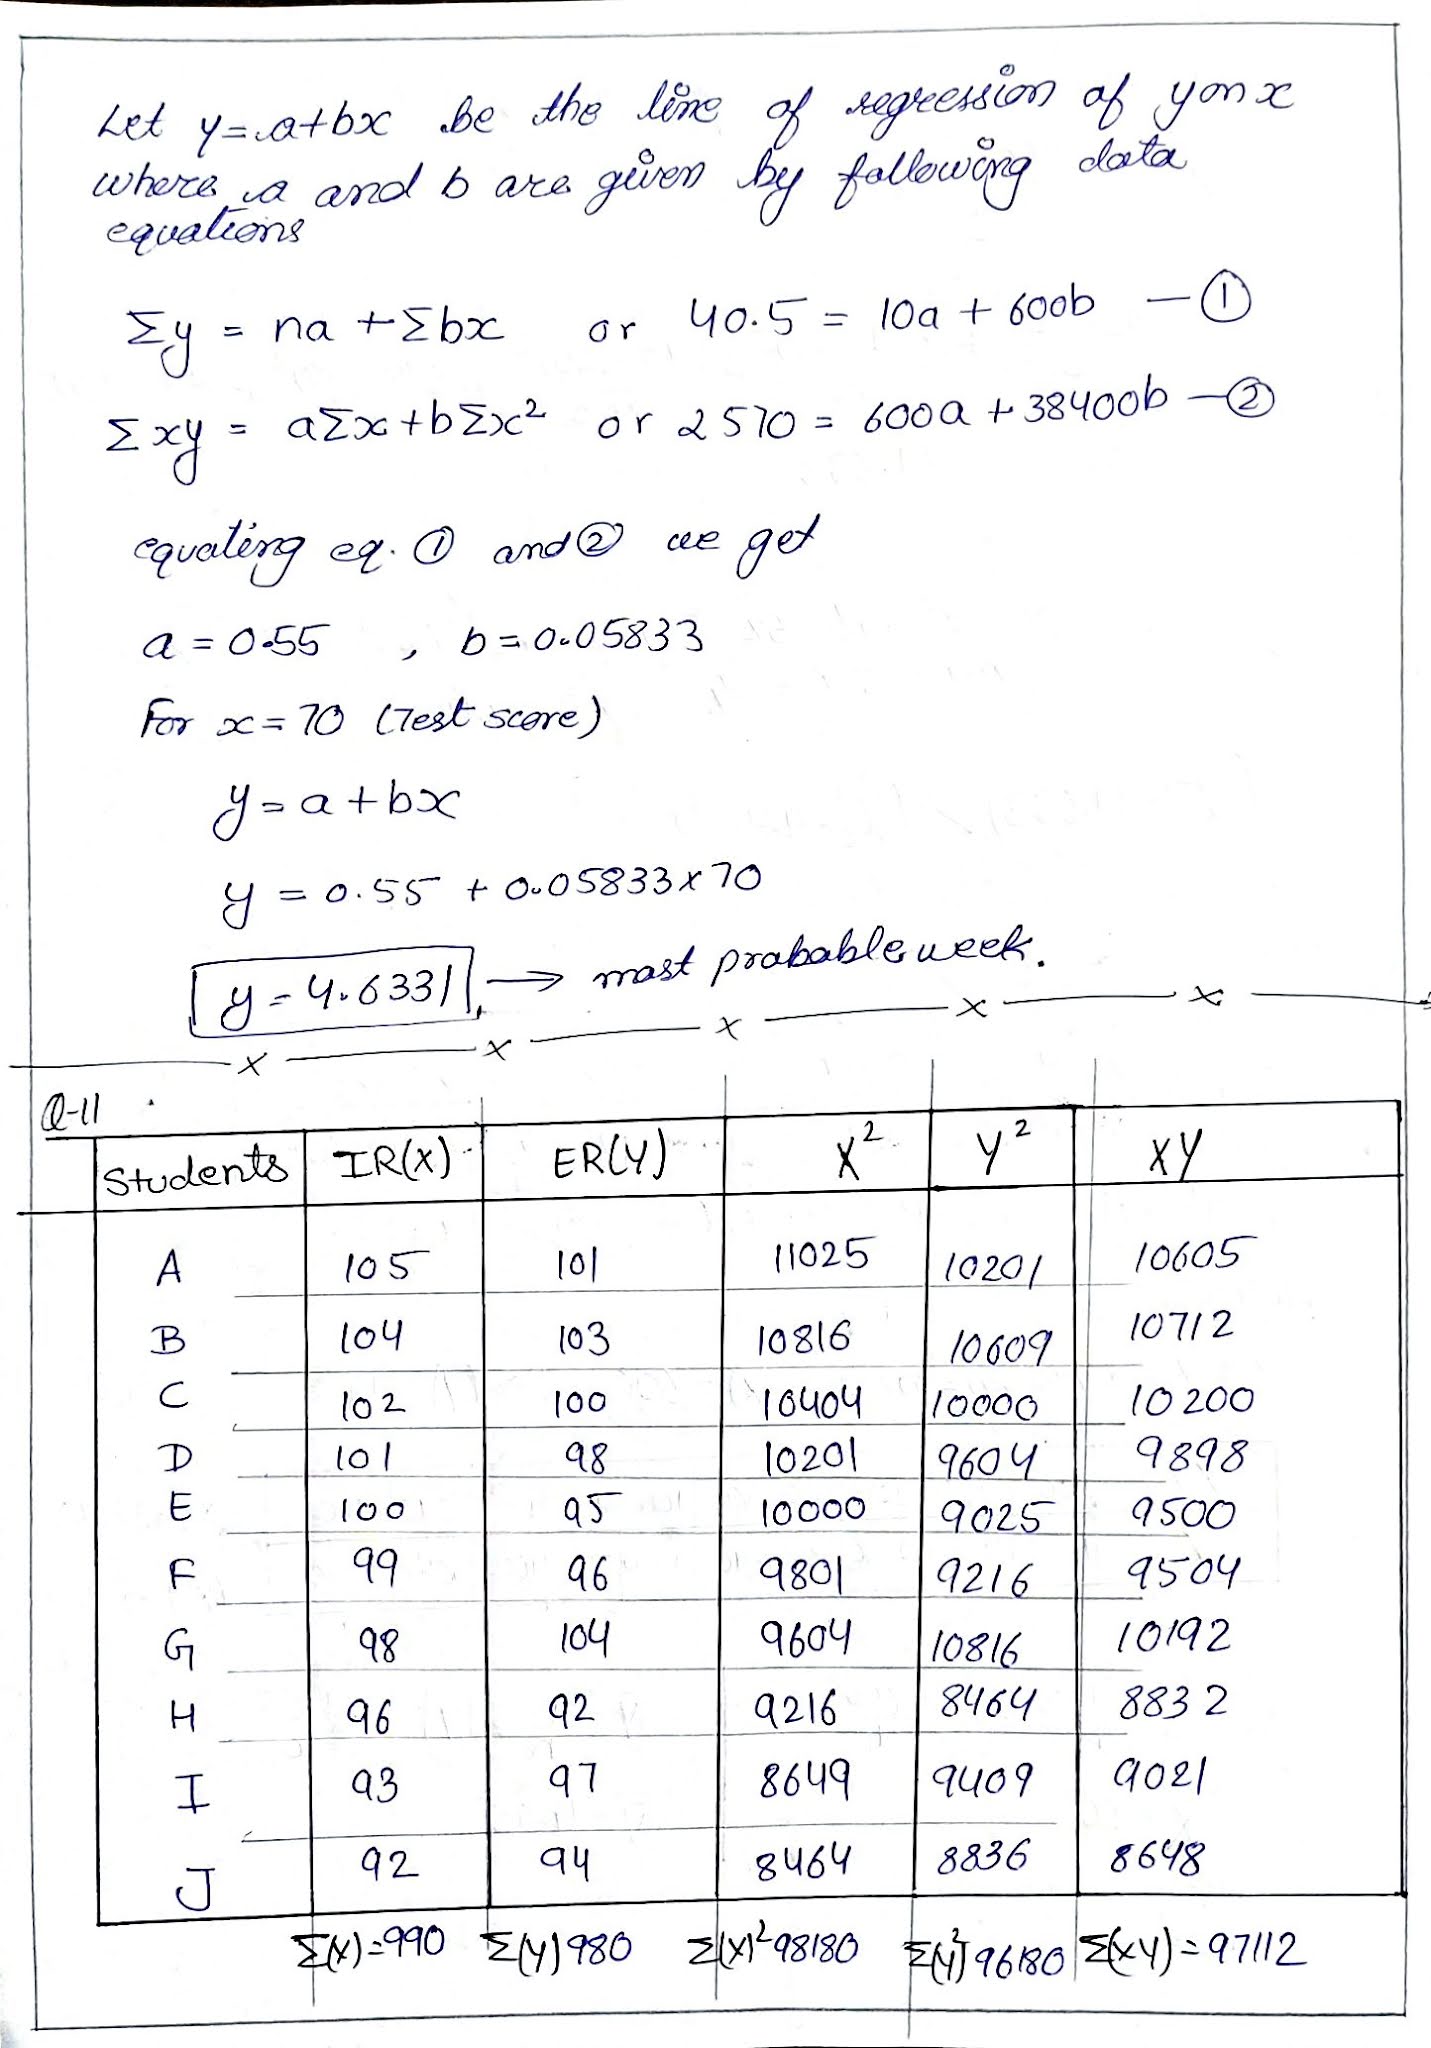 Let y=a+bx be the line of regression of y on x
where a and b are given by following data
equations
Σy = na + Σbx or 40.5 = 10a + 600b — ①
Σxy = aΣx + bΣx² or 2570 = 600a + 38400b — ②
equating eq. ① and ② we get
a = 0.55 , b = 0.05833
For x = 70 (Test score)
y = a + bx
y = 0.55 + 0.05833 x 70
y = 4.6331 → most probable week.
x x x x x
Q-11
Students IR(X) ER(Y) X² Y² XY
A 105 101 11025 10201 10605
B 104 103 10816 10609 10712
C 102 100 10404 10000 10200
D 101 98 10201 9604 9898
E 100 95 10000 9025 9500
F 99 96 9801 9216 9504
G 98 104 9604 10816 10192
H 96 92 9216 8464 8832
I 93 97 8649 9409 9021
J 92 94 8464 8836 8648
Σ(X)=990 Σ(Y) 980 Σ(X)² 98180 Σ(Y)² 96180 Σ(XY) = 97112